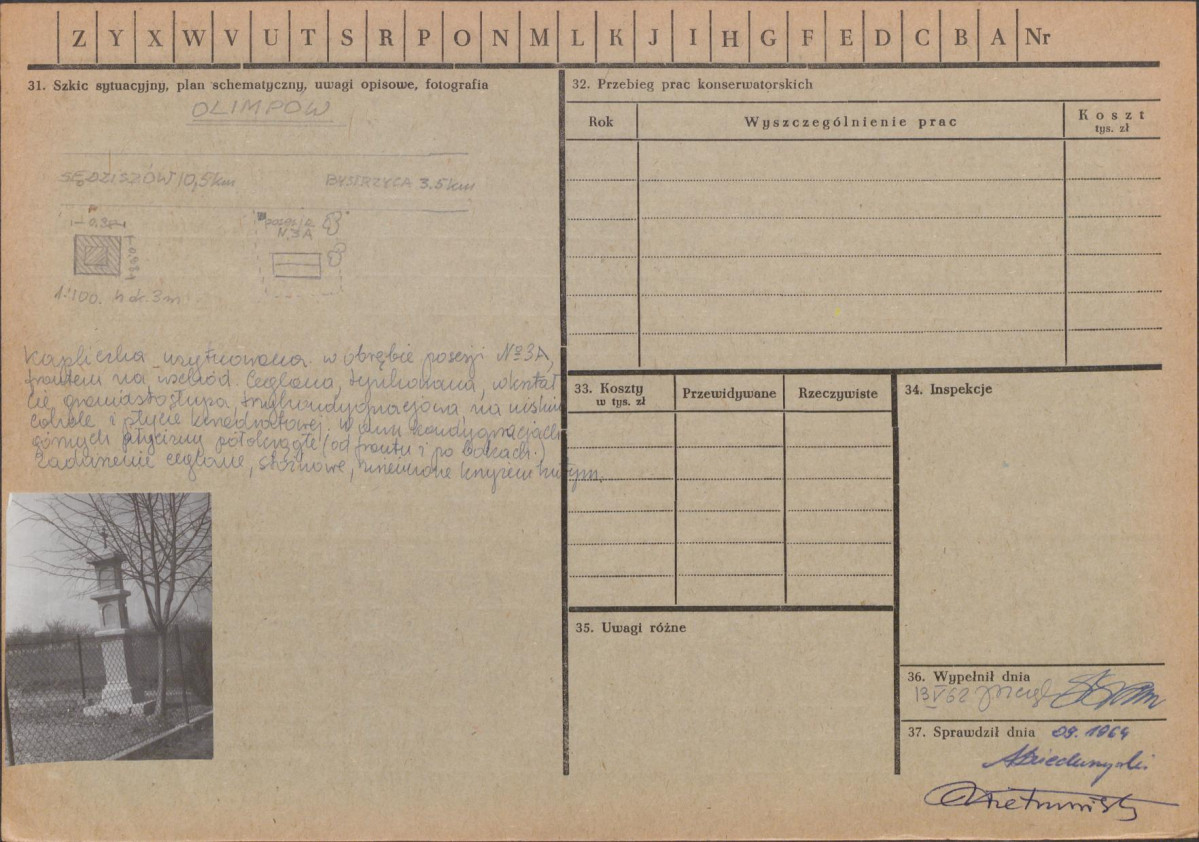 Z Y X W V U T S R P O N M L K J I H G F E D C B A Nr
31. Szkic sytuacyjny, plan schematyczny, uwagi opisowe, fotografia
OLIMPÓW
SĘDZISZÓW 10,5km BYSTRZYCA 3.5km
posesja
N.3A
1:100. h ok. 3m
Kapliczka usytuowana w obrębie posesji Nº 3A,
frontem na wschód. Ceglana, tynkowana, w kształ
cie graniastosłupa, trzykondygnacjowa, na niskim
cokole i płycie kwadratowej. W dwu kondygnacjach
górnych płyciny półokrągłe (od frontu i po bokach.)
Zadaszenie ceglane, stożkowe, zwieńczone krzyżem kutym.
32. Przebieg prac konserwatorskich
Rok Wyszczególnienie prac Koszt
tys. zł
33. Koszty
w tys. zł
Przewidywane Rzeczywiste
34. Inspekcje
35. Uwagi różne
36. Wypełnił dnia
13 V 62
37. Sprawdził dnia 09. 1964